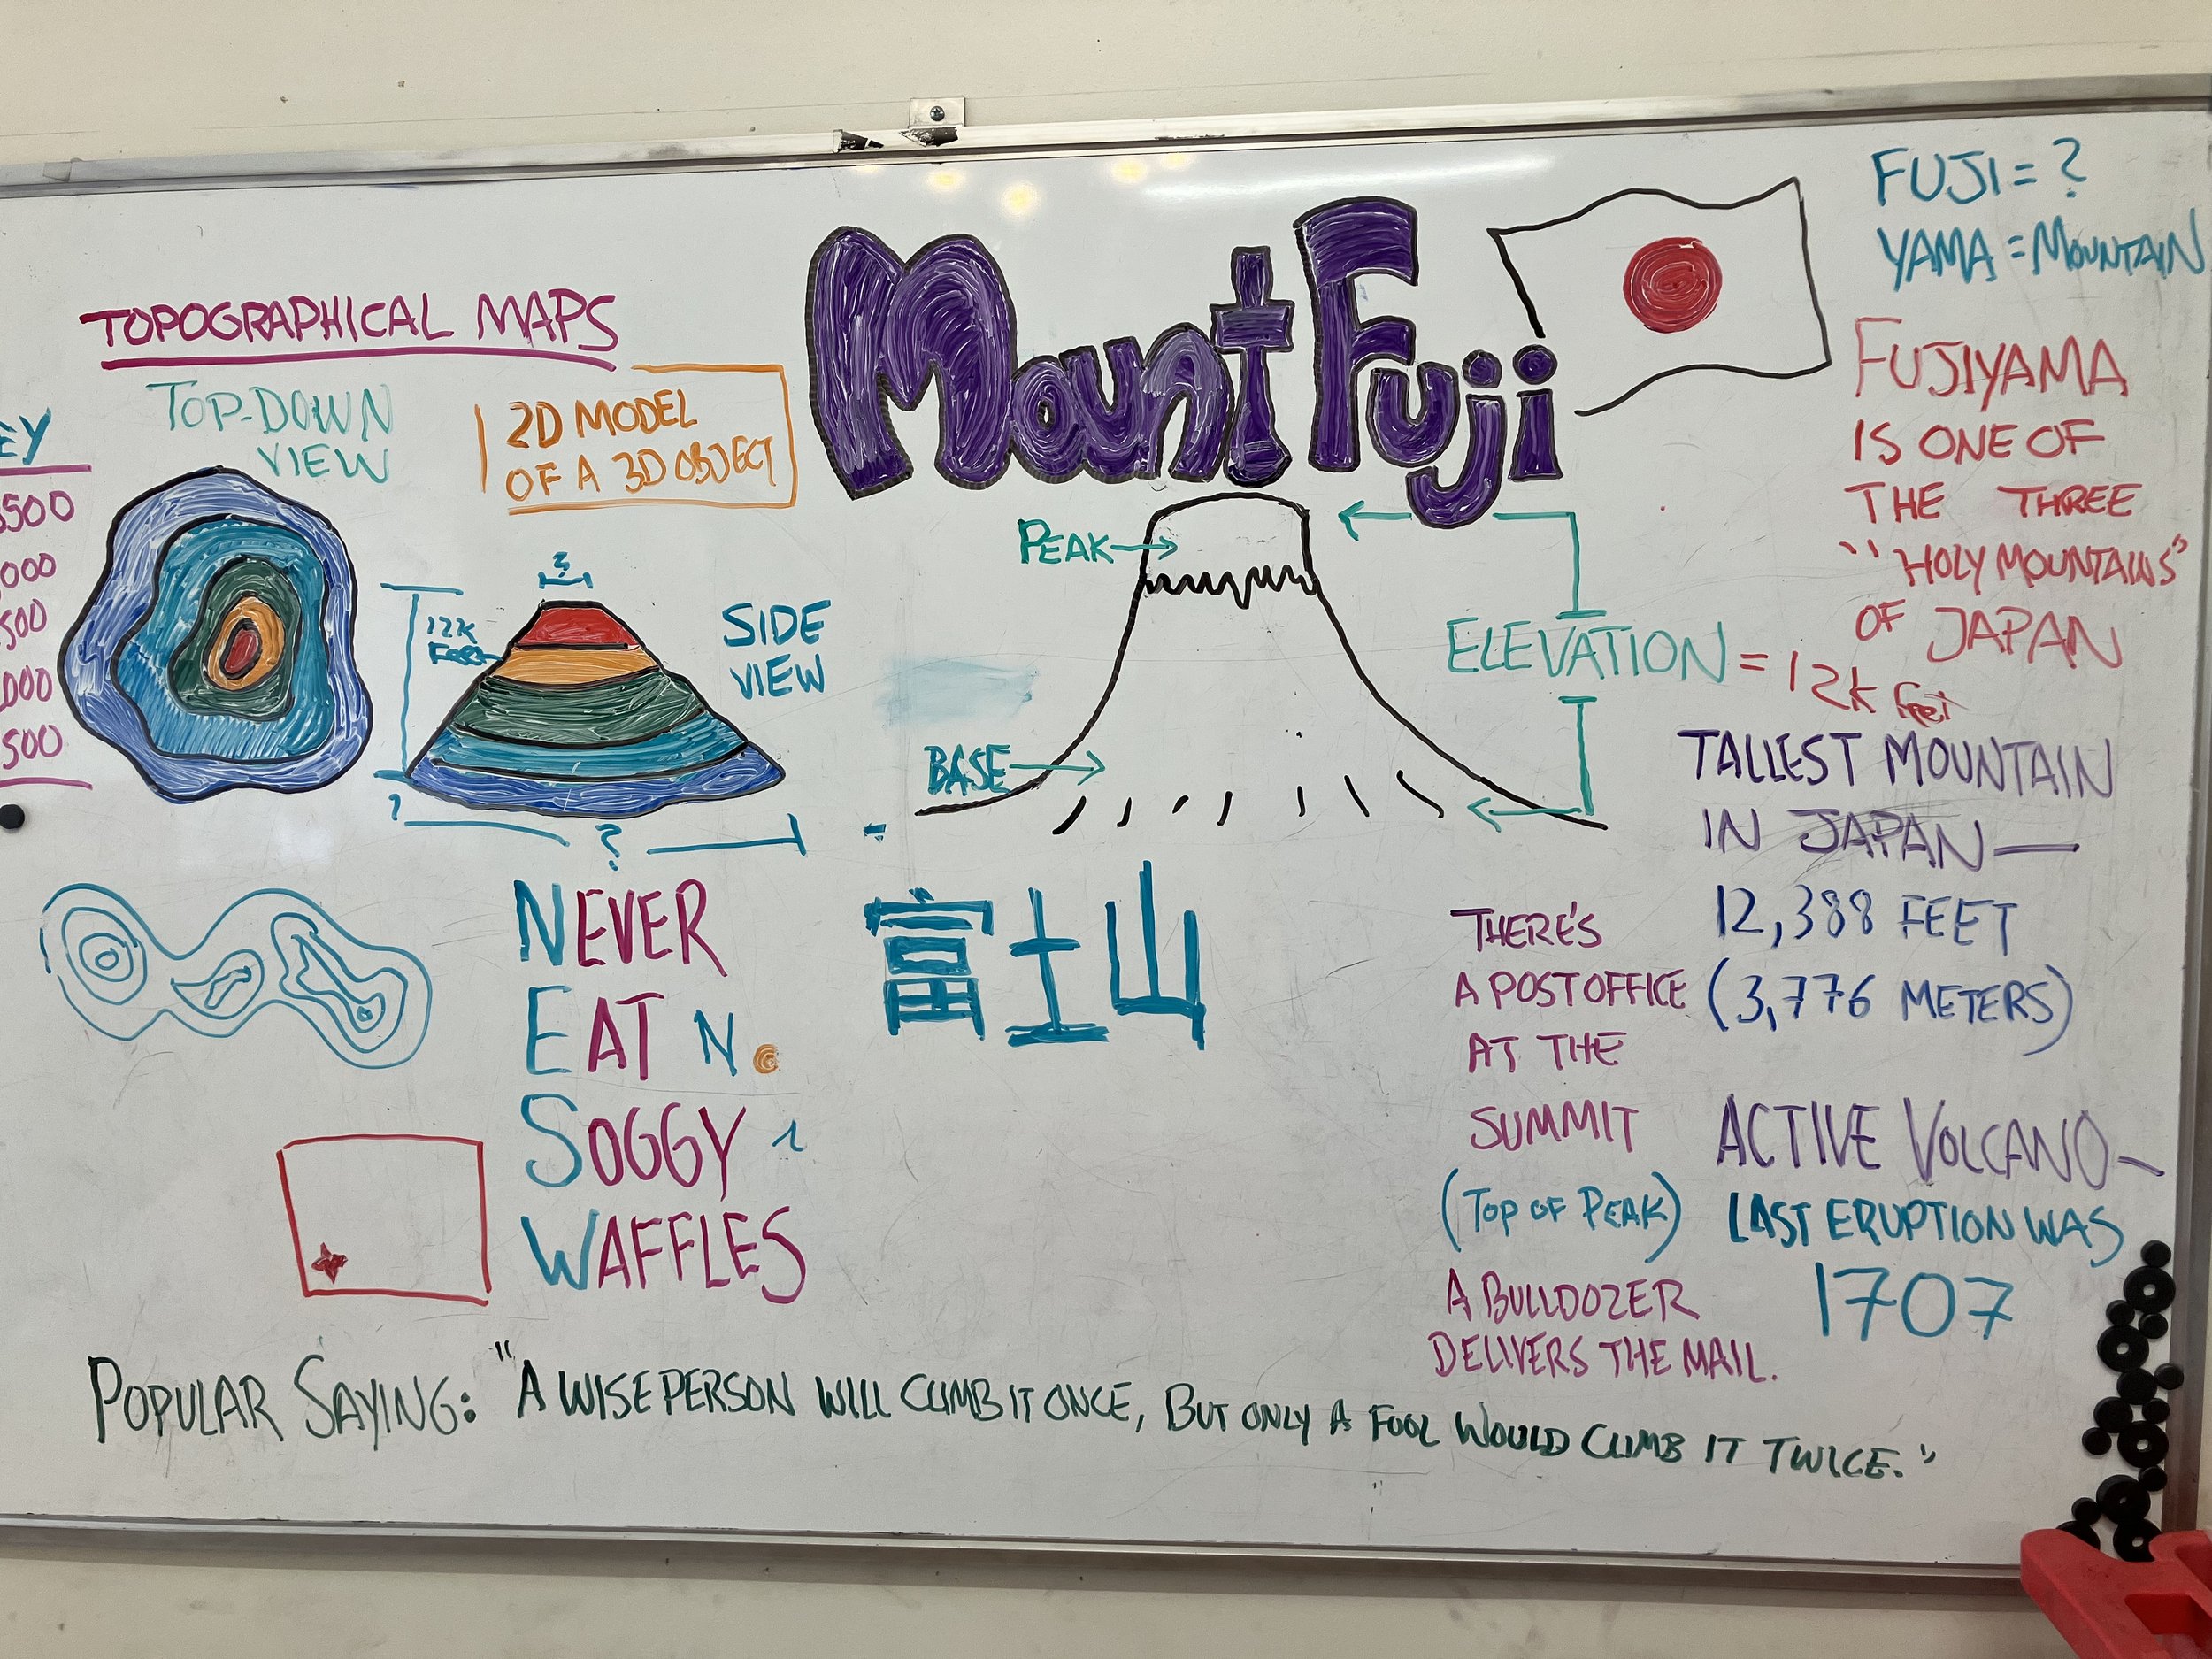 TOPOGRAPHICAL MAPS
TOP-DOWN
VIEW
2D MODEL
OF A 3D OBJECT
EY
500
000
500
000
500
?
12K
Feet
SIDE
VIEW
?
?
NEVER
EAT N.
SOGGY
WAFFLES
Mount Fuji
PEAK
BASE
ELEVATION = 12k feet
富士山
FUJI = ?
YAMA = MOUNTAIN
FUJIYAMA
IS ONE OF
THE THREE
"HOLY MOUNTAINS"
OF JAPAN
TALLEST MOUNTAIN
IN JAPAN—
12,388 FEET
(3,776 METERS)
THERE'S
A POST OFFICE
AT THE
SUMMIT
(TOP OF PEAK)
A BULLDOZER
DELIVERS THE MAIL.
ACTIVE VOLCANO—
LAST ERUPTION WAS
1707
POPULAR SAYING: "A WISE PERSON WILL CLIMB IT ONCE, BUT ONLY A FOOL WOULD CLIMB IT TWICE."